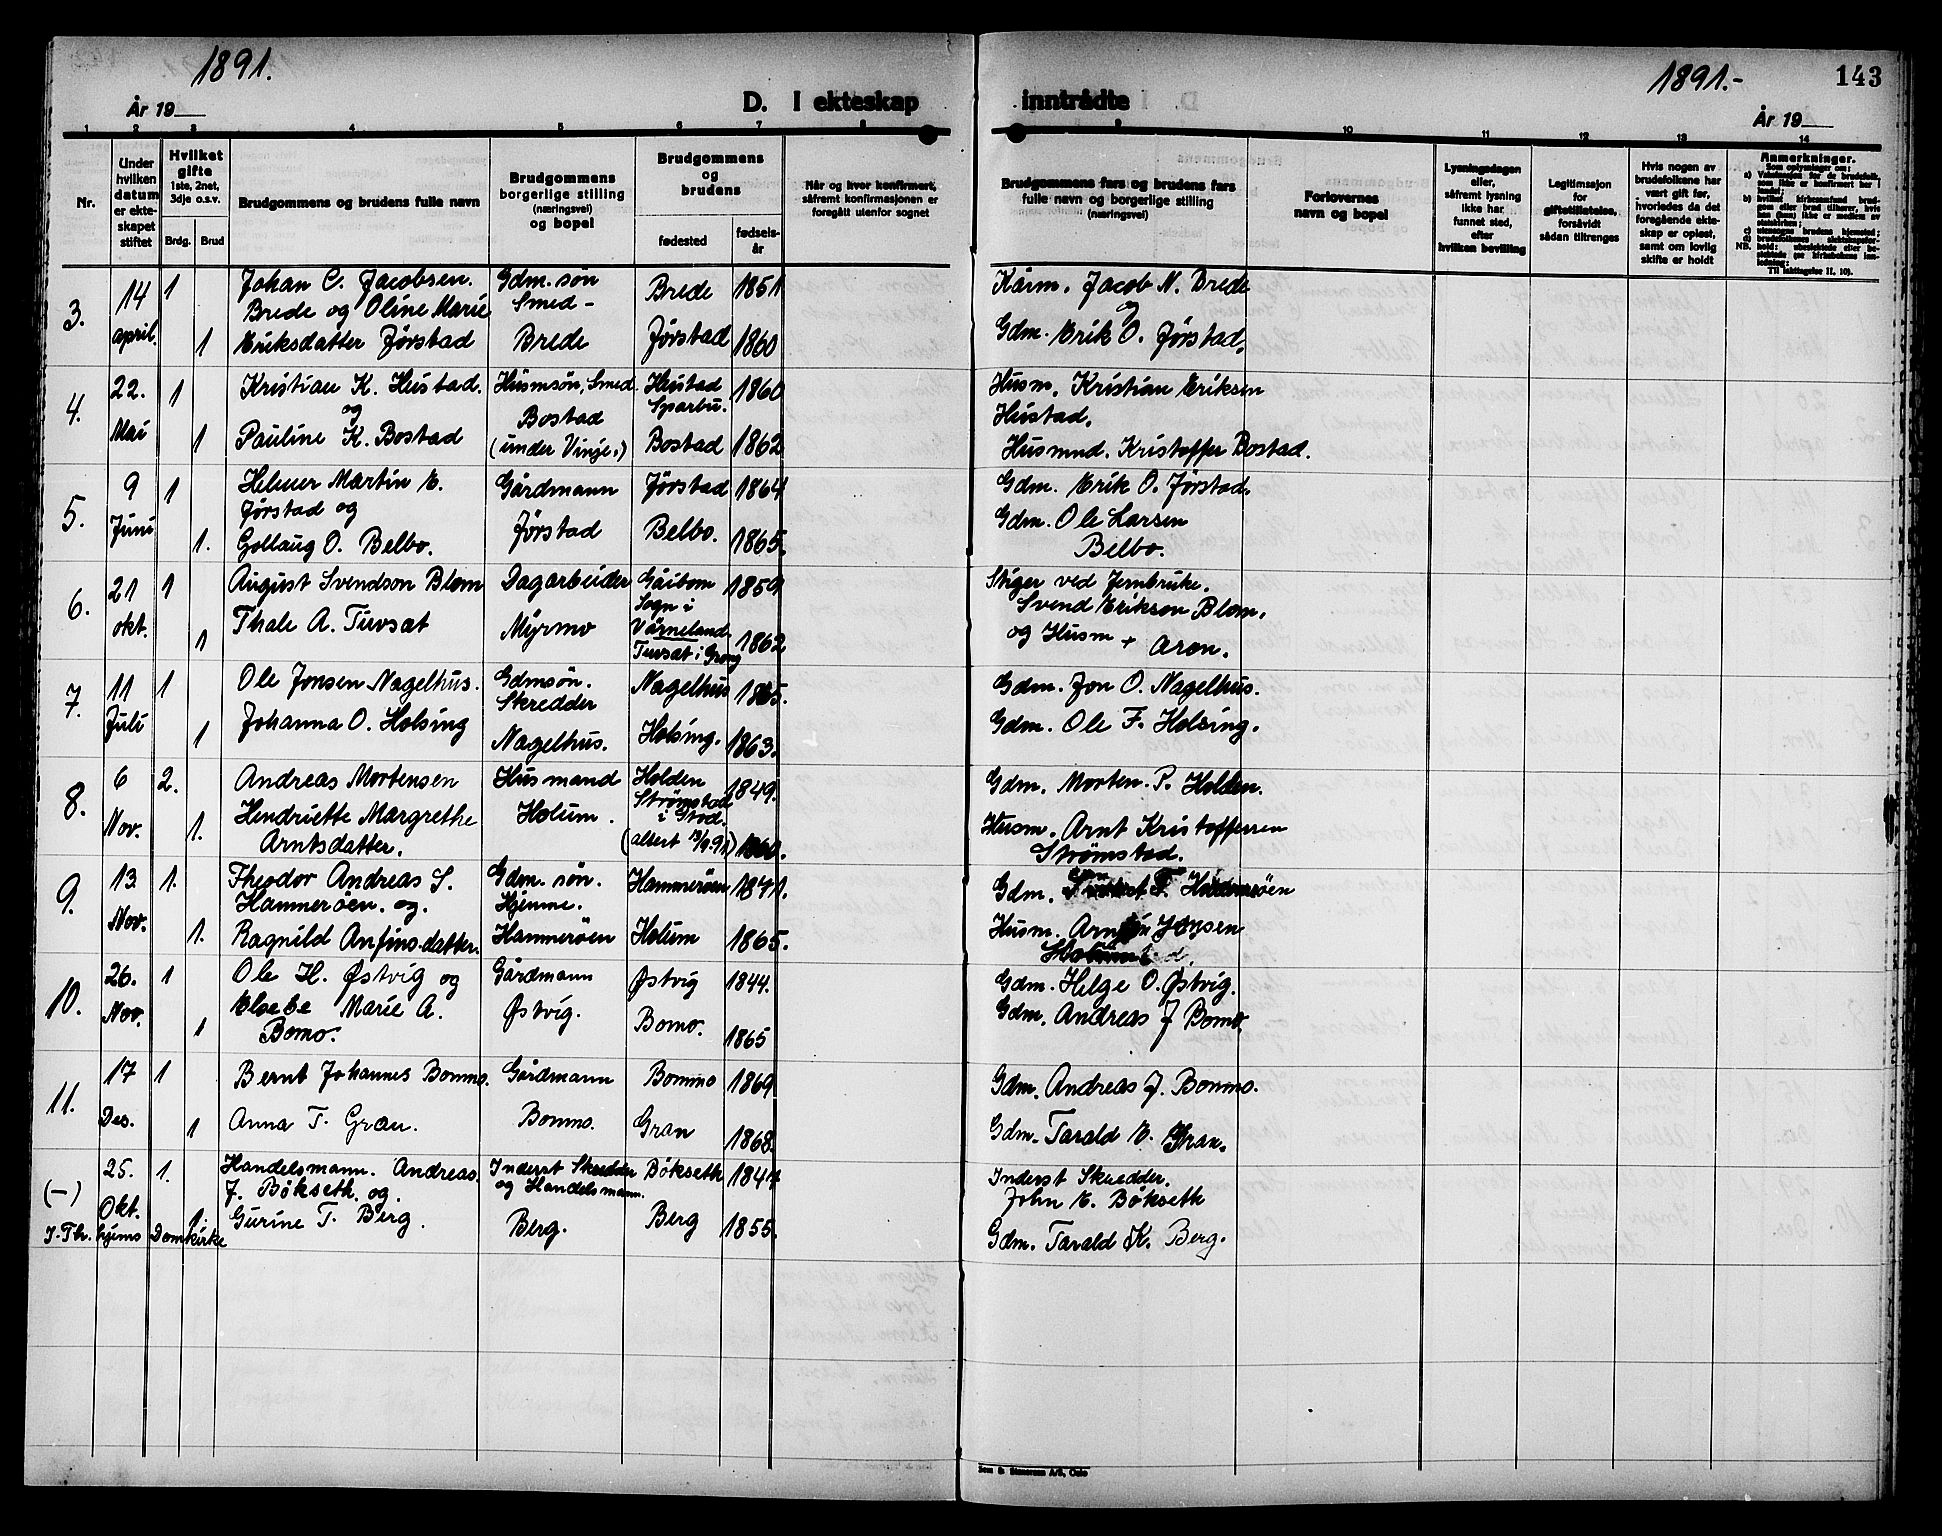 1891.
År 19
D. I ekteskap
1
2
3
4
5
6
7
8
Nr.
Under hvilken datum er ekteskapet stiftet
Hvilket gifte
1ste, 2net, 3dje o.s.v.
Brdg.
Brud
Brudgommens og brudens fulle navn
Brudgommens borgerlige stilling (næringsvei) og bopel
Brudgommens og brudens
fødested
fødselsår
Når og hvor konfirmert, såfremt konfirmasjonen er foregått utenfor sognet
3.
14 april
1
Johan C. Jacobsen.
Brede og Oline Marie
1
Eriksdatter Jørstad
Gdm. søn
Smed -
Brede
Brede
1851
Jørstad
1860
4.
22. Mai
1
Kristian K. Hustad.
og
1
Pauline K. Bostad
Husmsøn, Smed
Bostad
(under Vinje.)
Hustad
Sparbu.
1860
Bostad
1862
5.
9 Juni
1
Helmer Martin E.
Jørstad og
1.
Gollaug O. Belbo.
Gårdmann
Jørstad
Jørstad
1864
Belbo.
1865.
6.
21 okt.
1
August Svendson Blom
1
Thale A.
Dagarbeider
Myrmo
Sogn i
Värneland.
1859
i Grong
1862
7.
11 Juli
1
Ole Jonsen Nagelhus.
1
Johanna O. Holsing
Gdmsøn.
Skredder
Nagelhus.
Nagelhus
1865.
Holsing.
1863.
8.
6 Nov.
2.
Andreas Mortensen
1.
Hendriette Margrethe
Arntsdatter.
Husmand
Holum.
Holden
1849.
Strømstad
i Stod.
1860.
9.
13. Nov.
1.
Theodor Andreas S.
Hammerøen. og.
1.
Ragnild Anfinsdatter.
Gdm. søn.
Hjemme.
Hammerøen
Hammerøen
1841.
Holum
1865.
10.
26. Nov.
1
Ole H. Østvig og
Marie A.
1
Bomo.
Gårdmann
Østvig.
Østvig
1844.
Bomo.
1865
11.
17 Des.
1
Bernt Johannes Bommo.
1
Anna T. Gran.
Gårdmann
Bommo.
Bommo
1869
Gran
1868.
(-)
25. Okt.
1.
Handelsmann. Andreas.
J. Bökseth. og.
1.
Gurine T. Berg.
I. Th.hjems Domkirke
Inderst Skredder
og Handelsmann.
Berg.
Bökseth
Berg
1855.
1891.-
143
inntrådte
År 19
9
10
11
12
13
14
Brudgommens fars og brudens fars fulle navn og borgerlige stilling (næringsvei)
Forlovernes navn og bopel
Lysningsdagen eller, såfremt lysning ikke har funnet sted, efter hvilken bevilling
Legitimasjon for giftetillatelse, forsåvidt sådan tiltrenges
Hvis nogen av brudefolkene har vært gift før, hvorledes da det foregående ekteskap er opløst, samt om lovlig skifte er holdt
Anmerkninger.
Kårm. Jacob N. Brede
og
Gdm. Erik O. Jørstad.
Husm. Kristian Eriksen
Hustad.
Husmnd. Kristoffer Bostad.
Gdm. Erik O. Jørstad.
Gdm. Ole Larsen
Belbo.
Stiger ved Jernbruke.
Svend Erikson Blom.
og Husm + Aron.
Gdm. Jon O. Nagelhus.
Gdm. Ole F. Holsing.
Gdm. Morten. P. Holden.
Husm. Arnt Kristoffersen
Strømstad.
Gdm.
Husm.
Gdm. Helge O. Østvig.
Gdm. Andreas J Bomo.
Gdm. Andreas J. Bommo.
Gdm. Tarald E. Gran.
Inderst Skredder.
John E. Bökseth
Gdm. Tarald K. Berg.